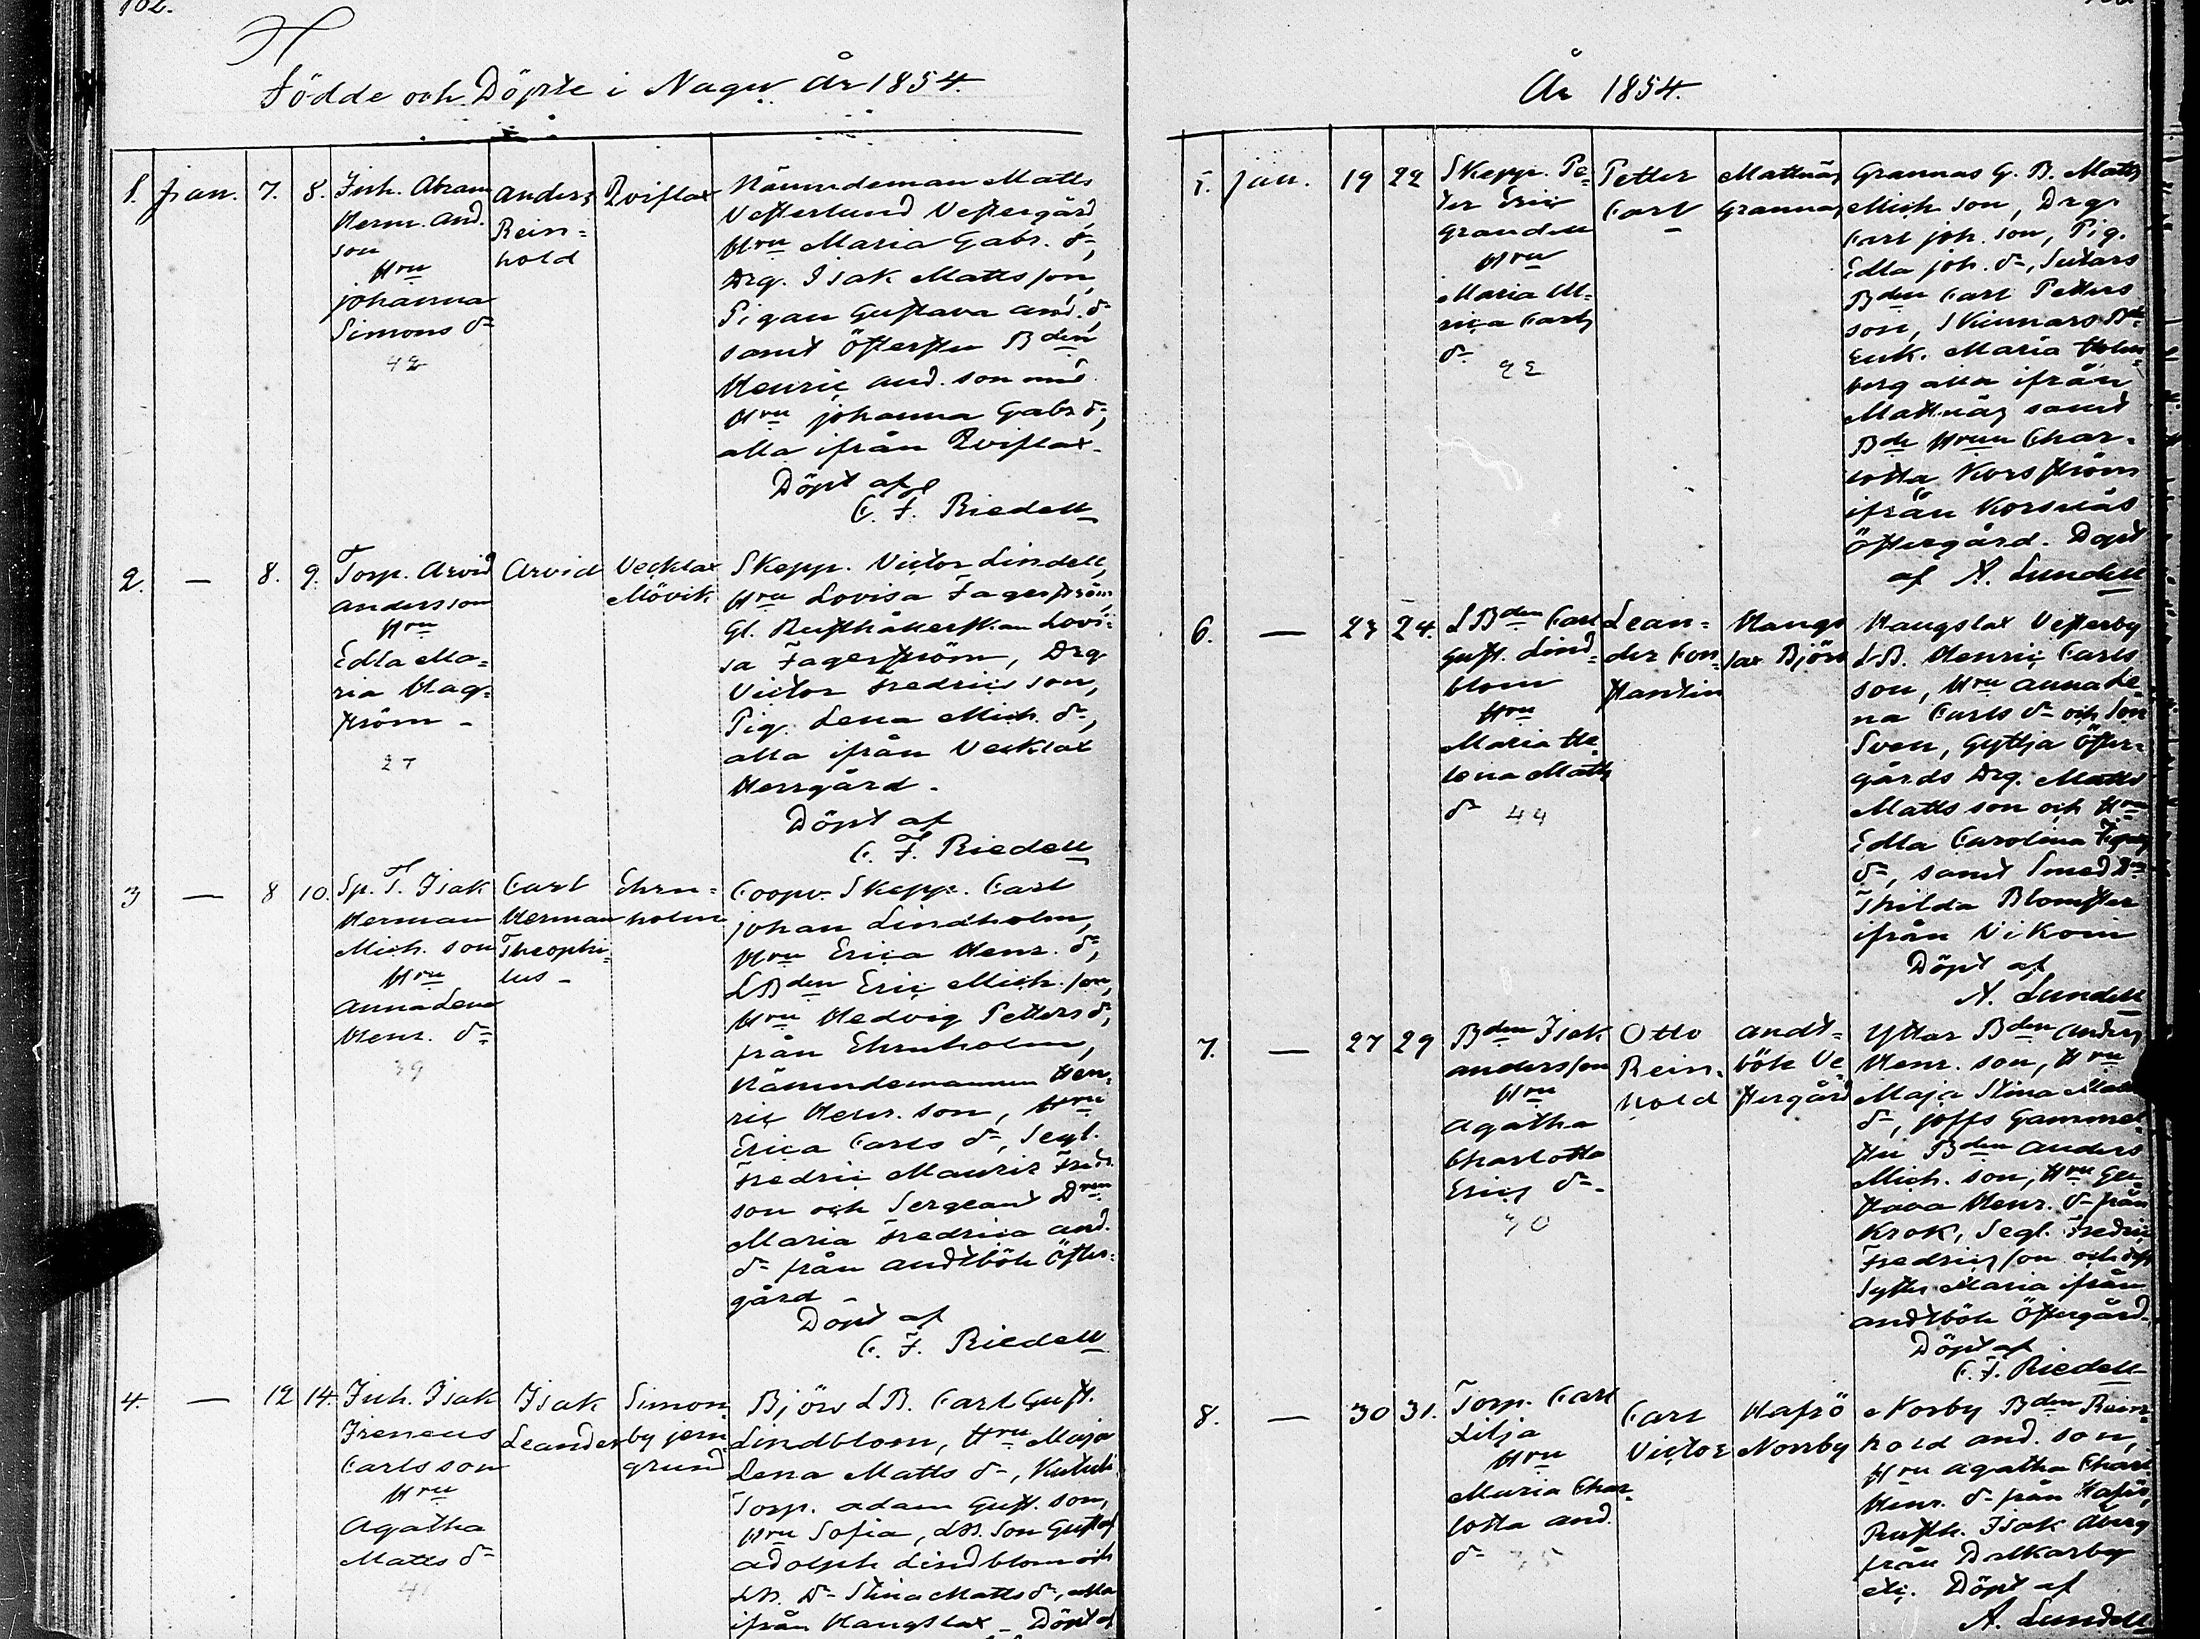 102.
Födde och Döpte i Nagu år 1854.
1. Jan. 7. 8.
Inh. Abram
Herm. And.
son
Hru
Johanna
Simons dr
42
Anders
Rein=
hold
Qviflax
Nämndeman Matts
Vesterlund Vestergård,
Hru Maria Gabr. dr,
Drg. Isak Mattsson,
Pigan Gustava And. dr
samt Österstu Bden
Henric And. son med
Hru Johanna Gabr dr,
alla ifrån Qviflax.
Döpt af
C. F. Riedell
2. — 8. 9.
Torp. Arvid
Andersson
Hru
Edla Ma=
ria Hag=
ström -
27
Arvid
Vecklax
Mövik
Skepp. Victor Lindell,
Hru Lovisa Fagerström,
Gl. Rusthållerskan Lovi=
sa Fagerström, Drg.
Victor Fredrics son,
Pig. Lena Mich. dr,
alla ifrån Vecklax
Herrgård.
Döpt af
C. F. Riedell
3 — 8 10.
Sp. T. Isak
Herman
Mich. son
Hru
Anna Lena
Henr. dr
39
Carl
Herman
Theophi=
lus -
Ehrn=
holm
Coopv. Skepp. Carl
Johan Lindholm,
Hru Erica Henr. dr,
LBden Eric Mich. son,
Hru Hedvig Petters dr,
från Ehrnholm,
Nämndemannen Hen=
ric Henr. son, Hru
Erica Carls dr, Segl.
Fredric Mauriz Fredr.
son och Sergeant
Maria Fredrica And.
dr från Andtböle Öster=
gård
Döpt af
C. F. Riedell
4. — 12 14.
Inh. Isak
Ireneus
Carlsson
Hru
Agatha
Matts dr
41
Isak
Leander
Simon
by jern
grund
Björs LB. Carl Gust.
Lindblom, Hru Maja
Lena Matts dr,
Torp. Adam Gust. son,
Hru Sofia, LB. Son Gustaf
Adolph Lindblom och
LB. Dr Stina Matts dr, alla
ifrån Haugslax - Döpt af
År 1854.
5. Jan. 19 22
Skepp. Pe=
ter Eric
Grandell
Hru
Maria Ul=
rica Carls
dr
Petter
Carl
Mattnäs
Grannas
Grannas G. B. Matts
Mich son, Drg.
Carl Joh. son, Pig.
Edla Joh. dr, Sutars
Bden Carl Petters
son, Skinnars
Enk. Maria Holm=
berg alla ifrån
Mattnäs samt
Bde Hrun Char=
lotta Korsström
ifrån Korsnäs
Östergård. Döpt
af A. Lundell
6. — 23 24.
LBden Carl
Gust. Lind=
blom
Hru
Maria He=
lena Matts
dr 44
Lean=
der Con=
stantin
Haugs
lax Björs
Haugslax Vesterby
LB. Henric Carls
son, Hru Anna Le=
na Carls dr och Son
Sven, Gyttja Öster=
gårds Drg. Matts
Matts son och Hru
Edla Carolina
dr, samt Smed
Thilda Blomster
ifrån Vikom
Döpt af
A. Lundell
7. — 27 29
Bden Isak
Andersson
Hru
Agatha
Charlotta
Erics dr.
Otto
Rein=
hold
Andt=
böle Ve
stergård
Yttar Bden Anders
Henr. son, Hru
Maja Stina
dr, Joffs Gammel
stu Bden Anders
Mich. son, Hru Gu
stava Henr. dr från
Krok, Segl. Fredric
Fredricsson och dess
Syster Maria ifrån
Andtböle Östergård.
Döpt af
C. F. Riedell
8. — 30 31.
Torp. Carl
Lilja
Hru
Maria Char=
lotta And.
dr
Carl
Victor
Hafsö
Norrby
Norby Bden Rein=
hold And. son,
Hru Agatha Charl.
Henr. dr från Hafsö,
Rusth. Isak Åberg
från Dalkarby
etc. Döpt af
A. Lundell